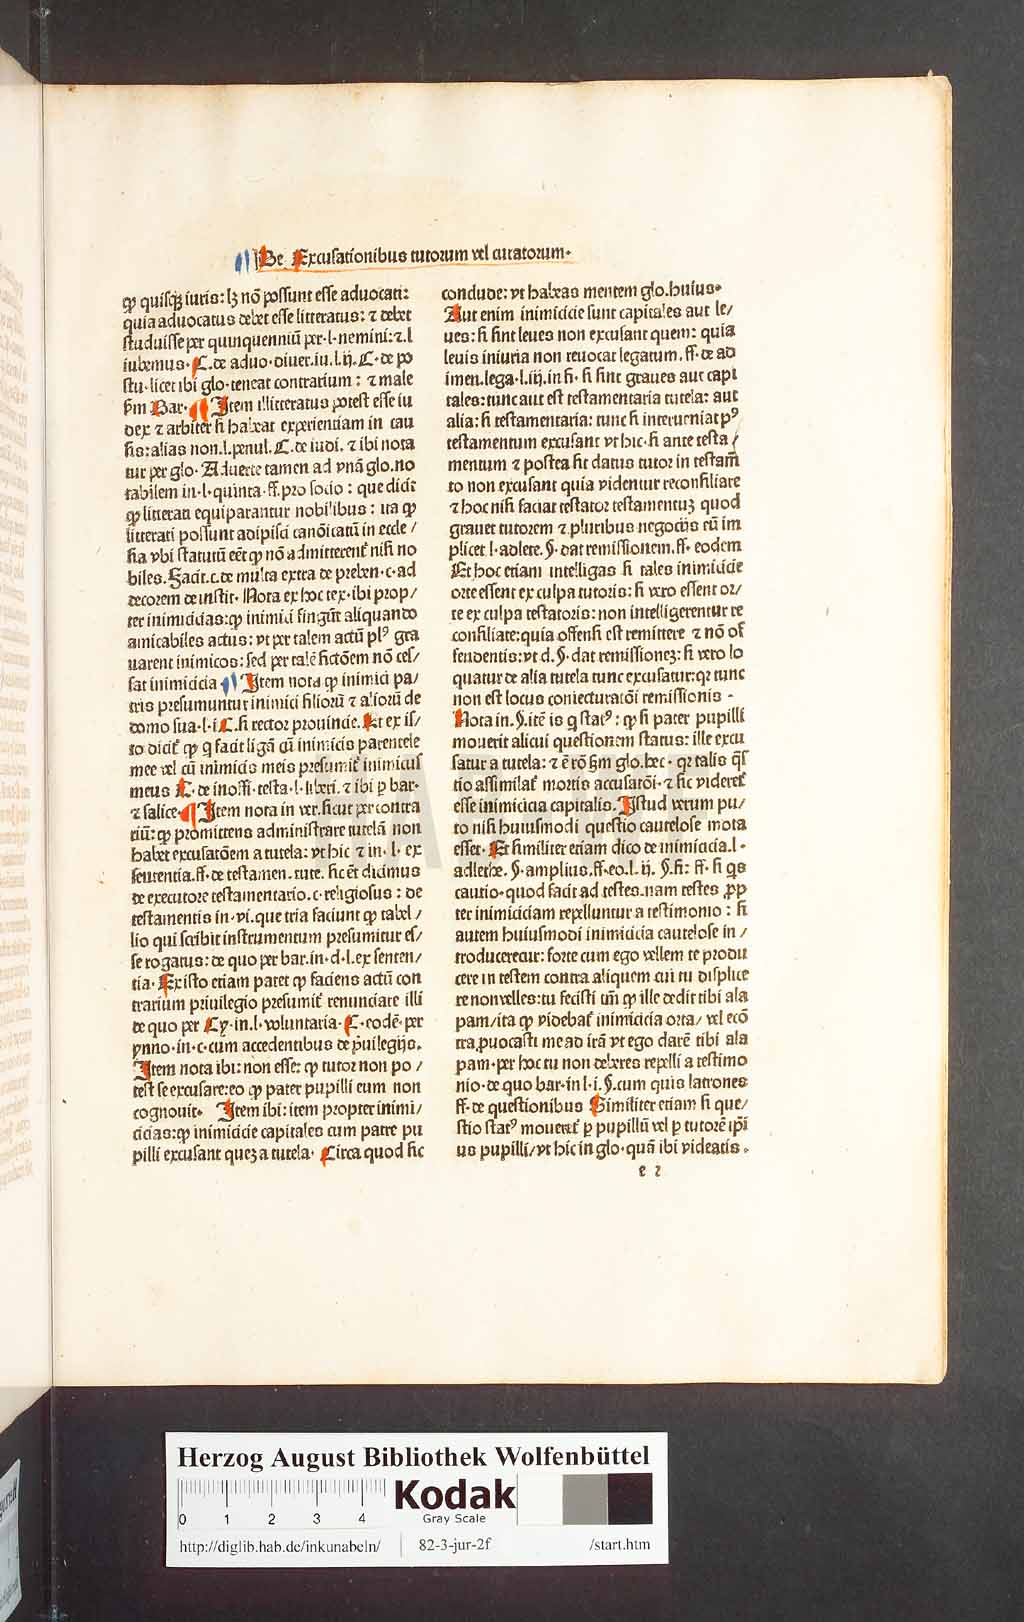 De Excusationibus tutorum vel curatorum.
ꝙ quisqȝ iuris: lȝ nō possunt esse aduocati:
quia aduocatus debet esse litteratus: ⁊ debet
studuisse per quinquenniū per.l.nemini:⁊.l.
iubemus. C. de aduo.diuer.iu.l.ij. C. de po
stu.licet ibi glo.teneat contrarium: ⁊ male
ẜm Bar. Item illitteratus potest esse iu
dex ⁊ arbiter si habeat experientiam in cau
sis: alias non.l.penul. C. de iudi. ⁊ ibi nota
tur per glo. Aduerte tamen ad vnā glo.no
tabilem in.l.quinta.ff.pro socio: que dicit
ꝙ litterati equiparantur nobilibus: ita ꝙ
litterati possunt adipisci canōicatū in eccle/
sia vbi statutū eēt ꝙ nō admitterent᷑ nisi no
biles. Facit.c.de multa extra de preben.c.ad
decorem de instit. Nota ex hoc tex.ibi prop/
ter inimicicias:ꝙ inimici fingūt aliquando
amicabiles actus: vt per talem actū plꝰ gra
uarent inimicos: sed per talē fictōem nō ces/
sat inimicicia Item nota ꝙ inimici pa/
tris presumuntur inimici filiorū ⁊ aliorū de
domo sua.l.i. C. si rector prouincie. Et ex is/
to dicit᷑ ꝙ q facit ligā cū inimicis parentele
mee vel cū inimicis meis presumit᷑ inimicus
meus C. de inoffi.testa.l.liberi. ⁊ ibi ꝑ bar.
⁊ salice. Item nota in ver.sicut per contra
riū:ꝙ promittens administrare tutelā non
habet excusatōem a tutela: vt hic ⁊ in.l.ex
sententia.ff.de testamen.tute. sic ēt dicimus
de executore testamentario.c.religiosus: de
testamentis in.vi.que tria faciunt ꝙ tabel/
lio qui scribit instrumentum presumitur es/
se rogatus: de quo per bar.in.d.l.ex senten/
tia. Ex isto etiam patet ꝙ faciens actū con
trarium priuilegio presumit᷑ renunciare illi
de quo per Cy.in.l.voluntaria. C. eodē.per
ynno.in.c.cum accedentibus de p̄uilegijs.
Item nota ibi: non esse: ꝙ tutor non po/
test se excusare:eo ꝙ pater pupilli eum non
cognouit. Item ibi: item propter inimi/
cicias:ꝙ inimicicie capitales cum patre pu
pilli excusant queȝ a tutela. Circa quod sic
conclude: vt habeas mentem glo.huius.
Aut enim inimicicie sunt capitales aut le/
ues: si sint leues non excusant quem: quia
leuis iniuria non reuocat legatum.ff.de ad
imen.lega.l.iij.in fi. si sint graues aut capi
tales: tunc aut est testamentaria tutela: aut
alia: si testamentaria: tunc si interueniat pꝰ
testamentum excusant vt hic.si ante testa/
mentum ⁊ postea sit datus tutor in testam̄
to non excusant quia videntur reconsiliare
⁊ hoc nisi faciat testator testamentuȝ quod
grauet tutorem ⁊ pluribus negocijs eū im
plicet l.adlete. §. dat remissionem.ff.eodem
Et hoc etiam intelligas si tales inimicicie
orte essent ex culpa tutoris: si vero essent or/
te ex culpa testatoris: non intelligerentur re
consiliate:quia offensi est remittere ⁊ nō of
fendentis:vt d. §. dat remissioneȝ: si vero lo
quatur de alia tutela tunc excusatur:qr tunc
non est locus coniecturatōi remissionis.
Nota in. §. itē is q statꝰ: ꝙ si pater pupilli
mouerit alicui questionem status: ille excu
satur a tutela: ⁊ ē rō ẜm glo.hec. qr talis q̄s
tio assimilat᷑ mortis accusatōi.⁊ sic videret᷑
esse inimicicia capitalis. Istud verum pu/
to nisi huiusmodi questio cautelose mota
esset. Et similiter etiam dico de inimicicia.l.
adlethe. §. amplius.ff.eo.l.ij. §. si: ff. si qs
cautio.quod facit ad testes.nam testes ꝓp
ter inimiciciam repelluntur a testimonio: si
autem huiusmodi inimicicia cautelose in/
troduceretur: forte cum ego vellem te produ
cere in testem contra aliquem cui tu displice
re non velles: tu fecisti tm̄ ꝙ ille dedit tibi ala
pam/ita ꝙ videbat᷑ inimicicia orta/ vel ecō
tra ꝓuocasti me ad irā vt ego darē tibi ala
pam.per hoc tu non deberes repelli a testimo
nio.de quo bar.in l.i. §. cum quis latrones
ff.de questionibus Similiter etiam si que/
stio statꝰ mouerēt᷑ ꝑ pupillū vel ꝑ tutorē ip̄i
us pupilli/vt hic in glo.quā ibi videatis.
e 2
Herzog August Bibliothek Wolfenbüttel
0 1 2 3 4
Kodak
Gray Scale
http://diglib.hab.de/inkunabeln/ 82-3-jur-2f /start.htm